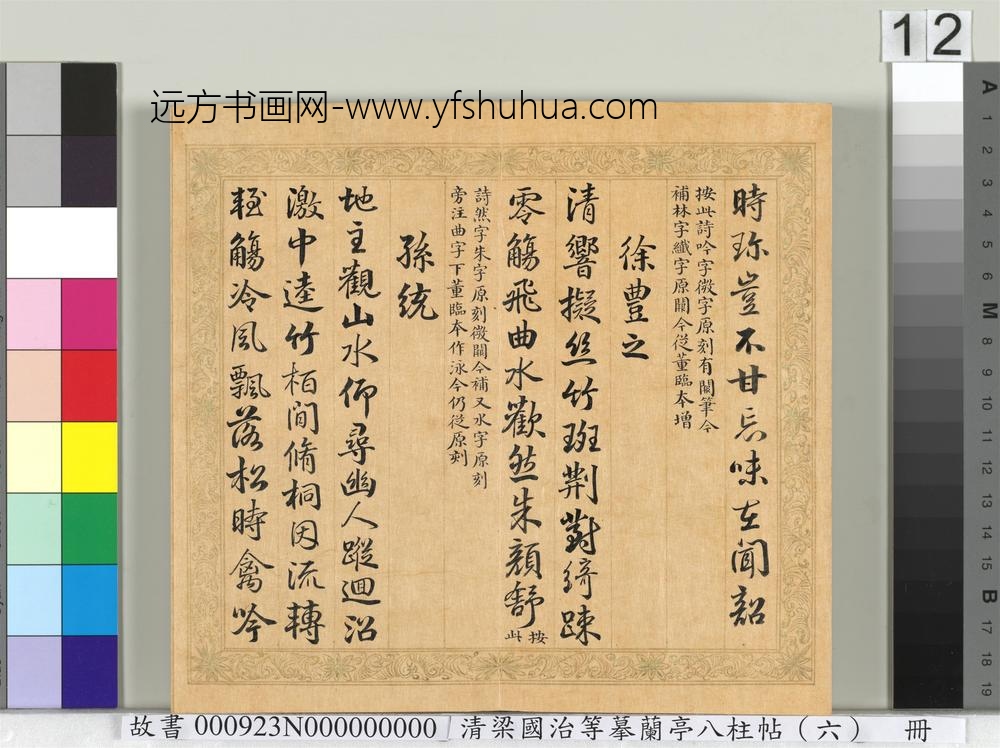 12
远方书画网-www.yfshuhua.com
時珎豈不甘忘味在聞韶
按此詩吟字微字原刻有闕筆今
補林字纖字原闕今從董臨本增
徐豊之
清響擬絲竹班荆對綺疎
零觴飛曲水歡然朱顔舒按此
詩然字朱字原刻微闕今補又水字原刻
旁注曲字下董臨本作泳今仍從原刻
孫統
地主觀山水仰尋幽人蹤迴沼
激中逵竹栢間脩桐因流轉
輕觴冷風飄落松時禽吟
A
1
2
3
4
5
6
M
8
9
10
11
12
13
14
15
B
17
18
19
故書 000923N000000000 清梁國治等摹蘭亭八柱帖（六） 冊